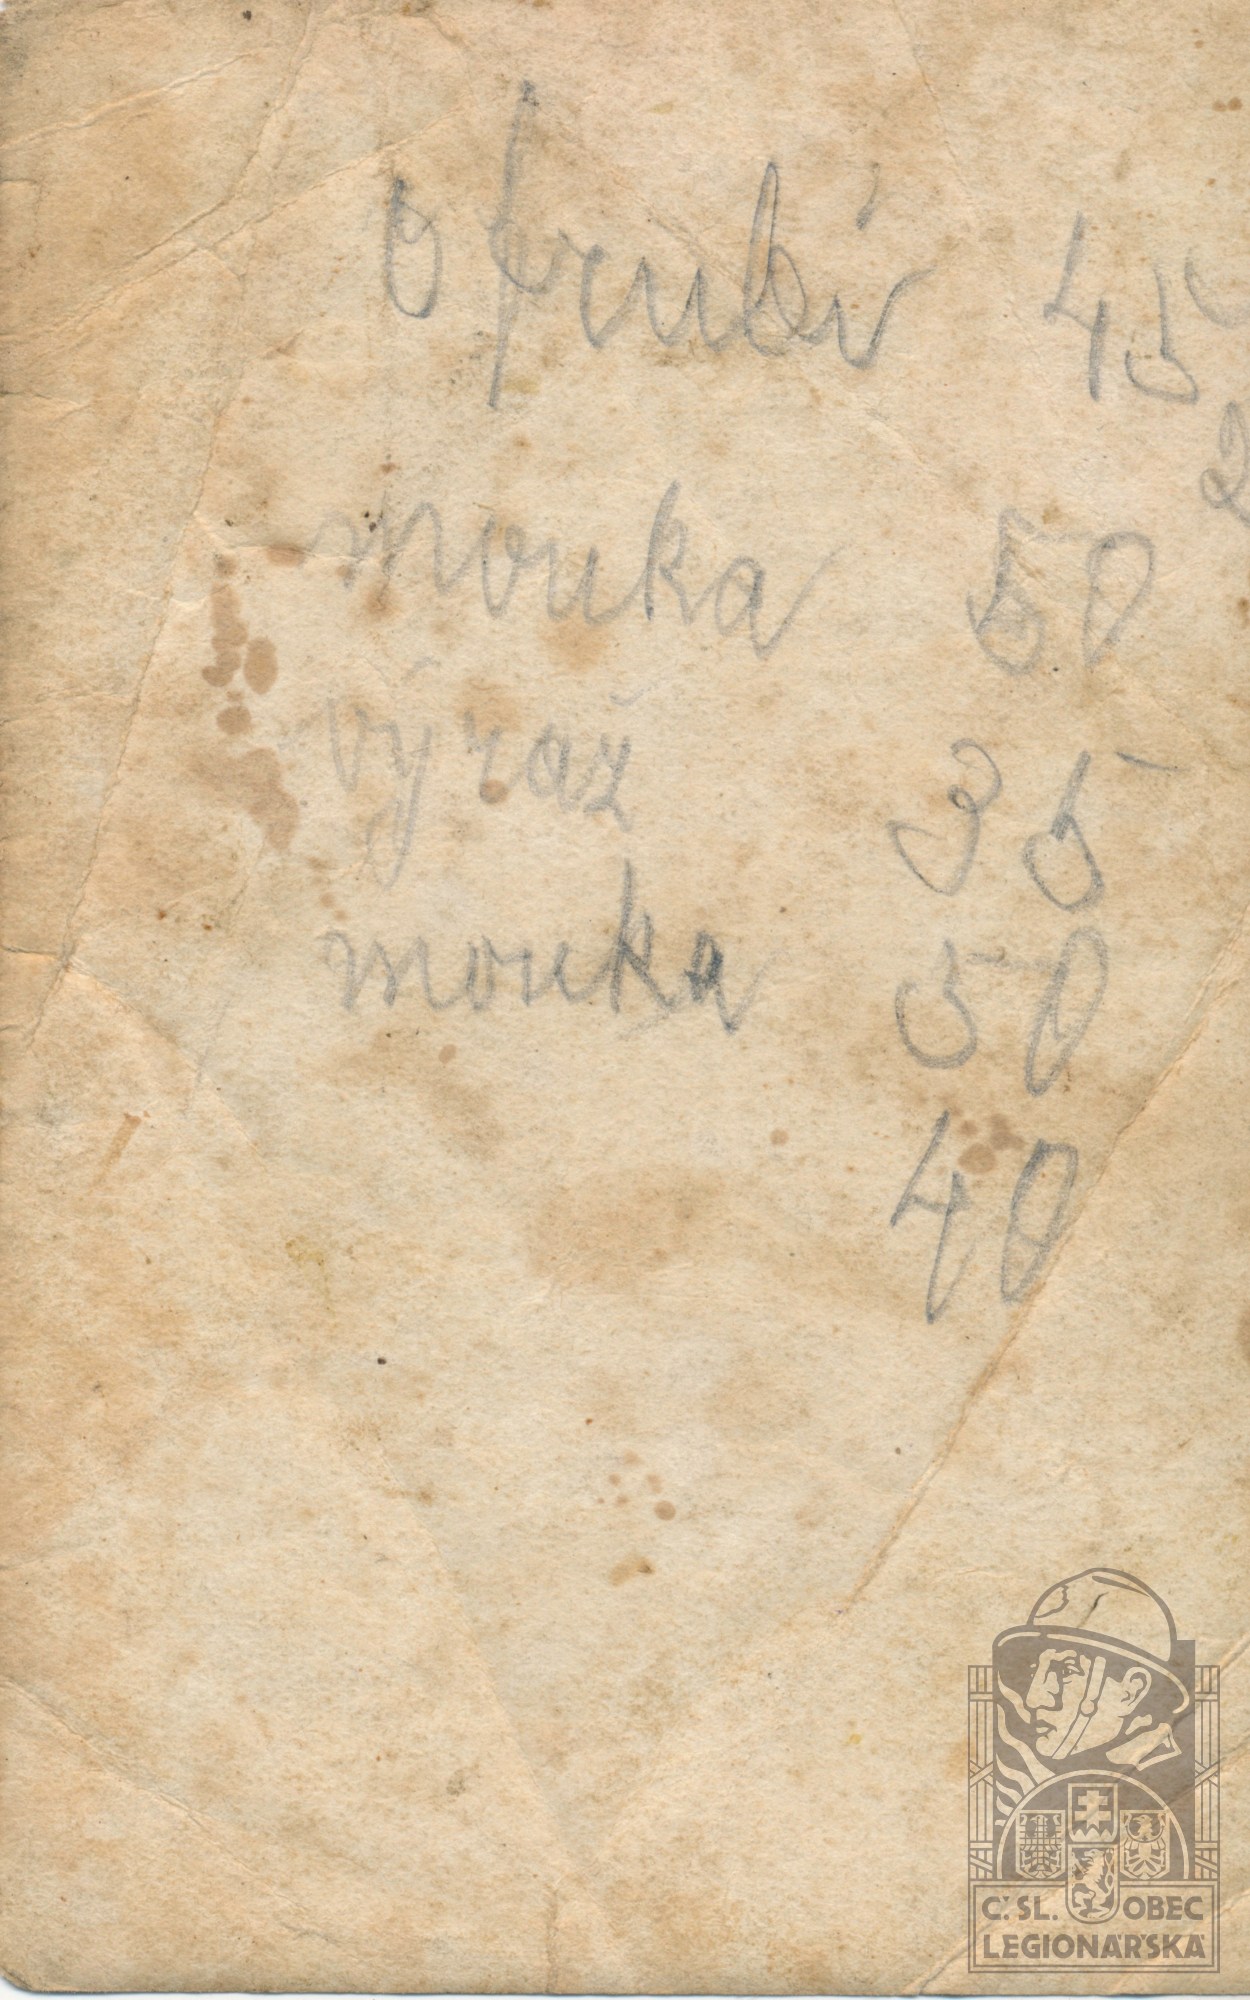 otrubi 45
2
mouka 50
výraž 35
mouka 50
40
Č.SL. OBEC
LEGIONÁŘSKÁ